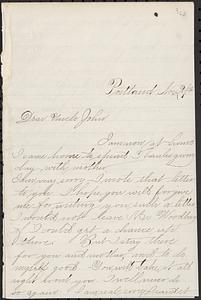 Portland Nov 29/
Dear Uncle John
I am now at home
I came home to spend Thanksgiving
day with mother
I am very sorry I wrote that letter
to you I hope you will forgive
me for writing you such a letter
I would not leave the Woodbury
if I could get a chance up
there. But I stay there
for you and mother and to do
myself good. You will take it all
right wont you I will never do
so again. I am real